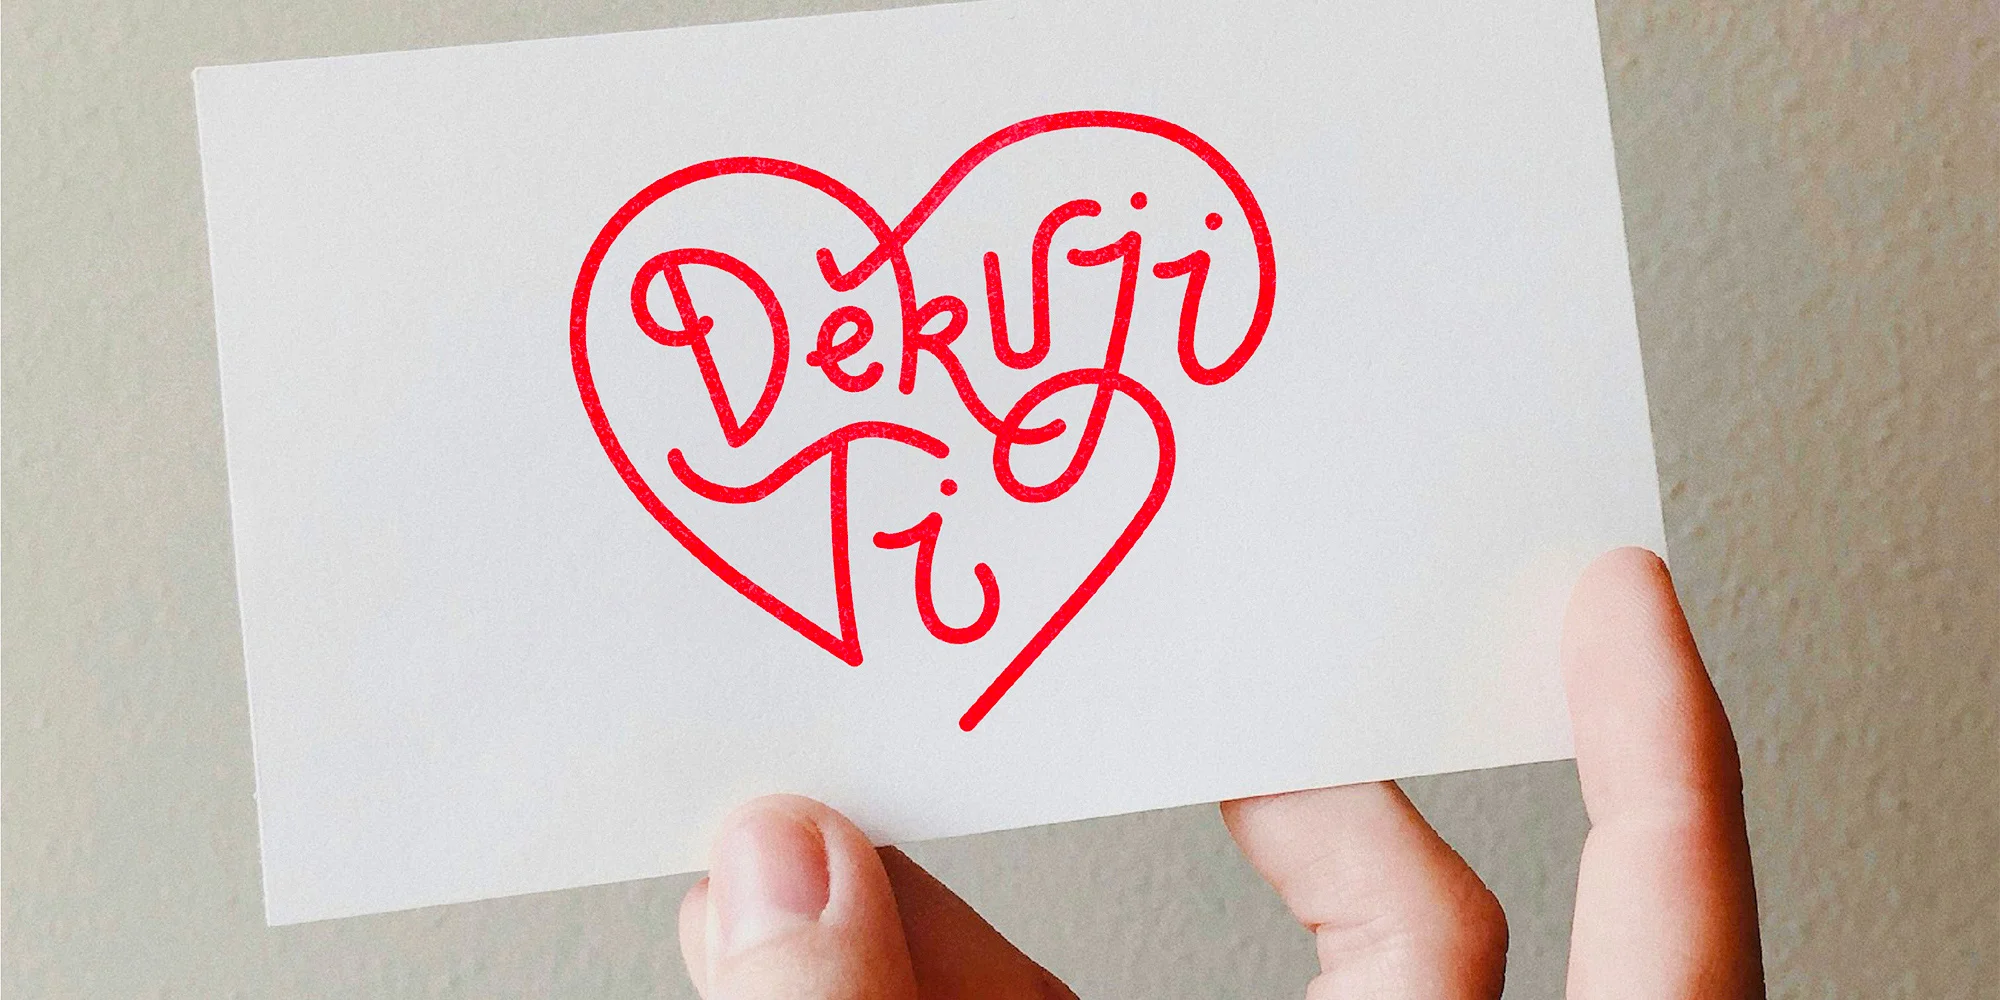 Děkuji
Ti